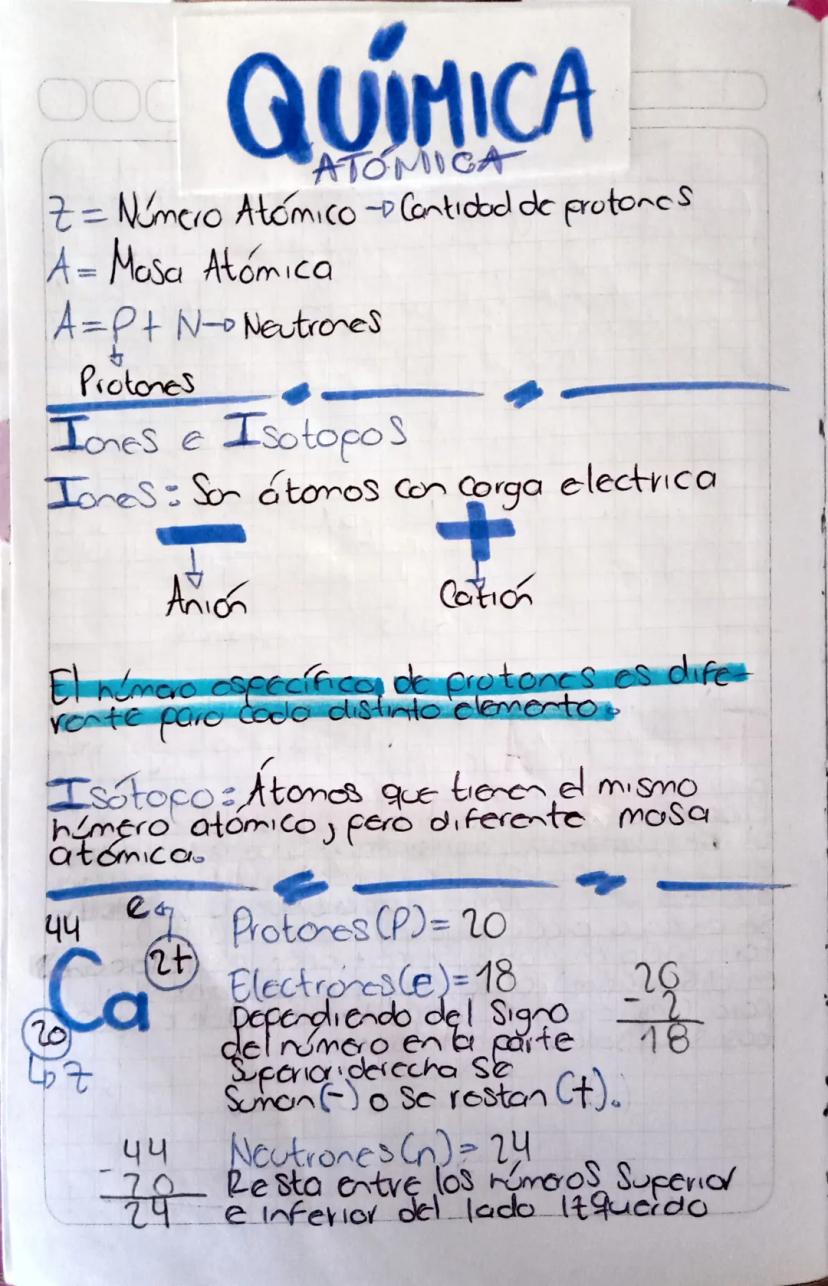 QUÍMICA
ATÓMICA
Z = Número Atómico → Cantidad de protones
A = Masa Atómica
A = P + N → Neutrones
Protones
Iones e Isotopos
Iones: Son átomos con carga electrica
- +
Anión Catión
El número específico de protones es dife-
rente para cada distinto elemento.
Isótopo: Átomos que tienen el mismo
número atómico, pero diferente masa
atómica.
44 e 2+ Protones (P) = 20
Ca Electrones (e) = 18 20
20 Dependiendo del signo - 2
Z del número en la parte 18
Superior derecha se
Suman (-) o se restan (+).
44 Neutrones (n) = 24
- 20 Resta entre los números Superior
24 e inferior del lado Izquerdo